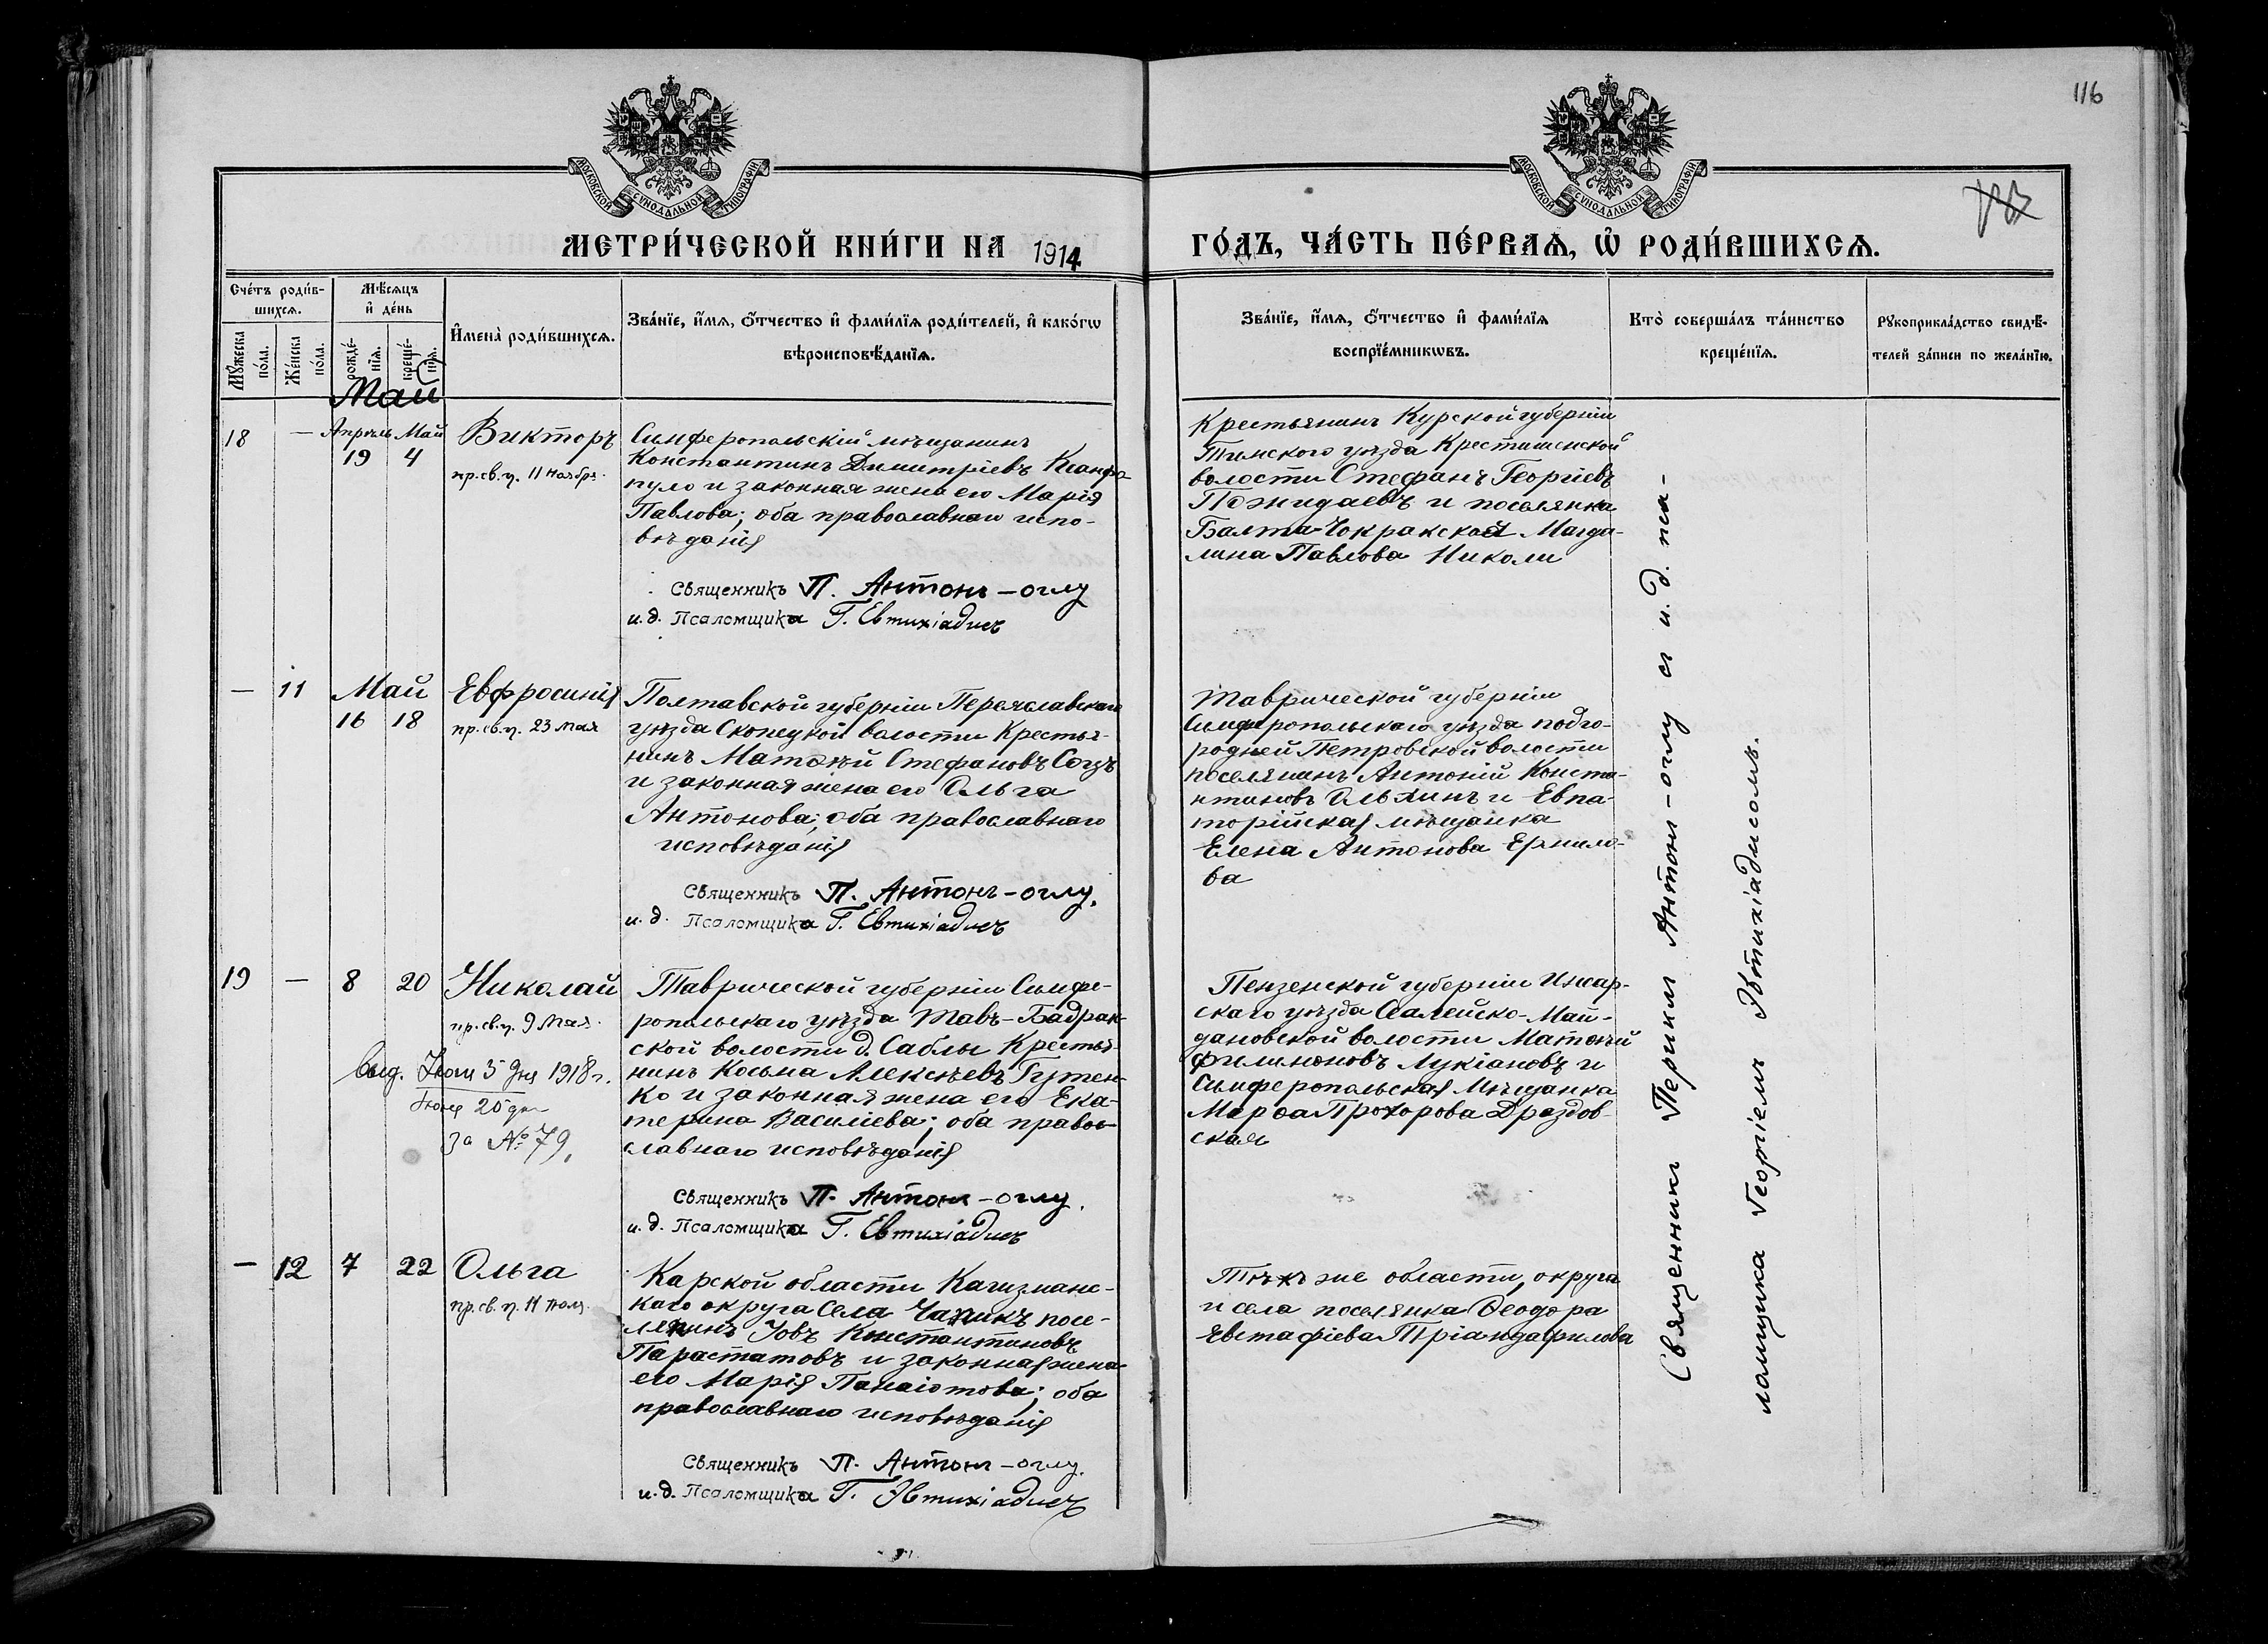 116
МОСКОВСКОЙ СѴНОДАЛЬНОЙ ТИПОГРАФІИ
МОСКОВСКОЙ СѴНОДАЛЬНОЙ ТИПОГРАФІИ
МЕТРИ́ЧЕСКОЙ КНИ́ГИ НА 1914
ГО́ДЪ, ЧА́СТЬ ПЕ́РВАѦ, Ѡ҆ РОДИ́ВШИХСѦ.
Сче́тъ роди́в-
шихсѧ.
Мѣ́сѧцъ
и҆ де́нь
Мꙋ́жеска
по́ла.
Же́нска
по́ла.
рожде́-
нїѧ.
креще́-
нїѧ.
И҆мена̀ роди́вшихсѧ.
Зва́нїе, и҆́мѧ, ѻ҆́тчество и҆ фами́лїѧ роди́телей, и҆ како́гѡ
вѣроисповѣ́данїѧ.
Зва́нїе, и҆́мѧ, ѻ҆́тчество и҆ фами́лїѧ
воспрїе́мникѡвъ.
Кто̀ соверша́лъ та́инство
креще́нїѧ.
Рꙋкоприкла́дство свидѣ́-
телей за́писи по жела́нїю.
Май
18 — Апрѣль Май Викторъ
19 4
пр. св. п. 11 ноября.
Симферопольскій мѣщанинъ
Константинъ Димитріевъ
и законная жена его Марія
Павлова; оба православнаго испо-
вѣданія
Священникъ П. Антонъ-оглу
и.д. Псаломщика Г. Евтихіадисъ
Крестьянинъ Курской губерніи
Тимского уѣзда Крестищенской
волости Стефанъ Георгіевъ
Пожидаевъ и поселянка
Балта-Чокракская Магда-
лина Павлова Николи
— 11 Май Евфросинія
16 18 пр. св. п. 23 мая
Полтавской губерніи Переяславскаго
уѣзда Скопецкой волости Крестья-
нинъ Матѳій Стефановъ
и законная жена его Ольга
Антонова; оба православнаго
исповѣданія
Священникъ П. Антонъ-оглу.
и.д. Псаломщика Г. Евтихіадисъ
Таврической губерніи
Симферопольскаго уѣзда подго-
родней Петровской волости
поселянинъ Антоній Конста-
нтиновъ и Евпа-
торійская мѣщанка
Елена Антонова Ермило-
ва
19 — 8 20 Николай
пр. св. п. 9 Мая.
выд. Іюля 5 дня 1918 г.
Іюня 25 дня
за № 79.
Таврической губерніи Симфе-
ропольскаго уѣзда Тавъ-Бадрак-
ской волости д. Саблы Крестья-
нинъ Косьма Алексѣевъ Гутен-
ко и законная жена его Ека-
терина Василіева; оба право-
славнаго исповѣданія
Священникъ П. Антонъ-оглу.
и.д. Псаломщика Г. Евтихіадисъ
Пензенской губерніи Инсар-
скаго уѣзда Май-
дановской волости Матѳій
Филимоновъ Лукіановъ и
Симферопольская Мѣщанка
Марѳа Прохорова Дроздов-
ская
— 12 7 22 Ольга
пр. св. п. 11 Іюля.
Карской области Кагизманс-
каго округа Села посе-
лянинъ Іовъ Константиновъ
Парастатовъ и законная жена
его Марія Панаіотова; оба
православнаго исповѣданія
Священникъ П. Антонъ-оглу.
и.д. Псаломщика Г. Евтихіадисъ
Тѣхъ же области, округа
и села поселянка Ѳеодора
Евстафіева Тріандафилова
Священникъ Периклъ Антонъ-оглу съ и.д. пса-
ломщика Георгіемъ Евтихіадисомъ.